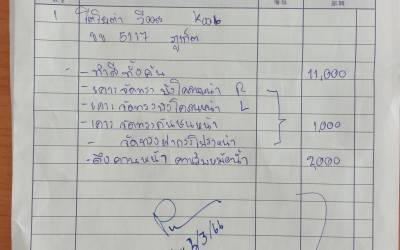 1 โตโยต้า วีออส
ขข 5117 ภูเก็ต
- ทำสีทั้งคัน 11,000
- เคาะ จัดทรง บังโคลนหน้า R
- เคาะ จัดทรง บังโคลนหน้า L
- เคาะ จัดทรงคันชนหน้า 1,000
- จัดทรงฝากระโปรงหน้า
- ดึงคานหน้า คานรับหม้อน้ำ 2,000
/3/66